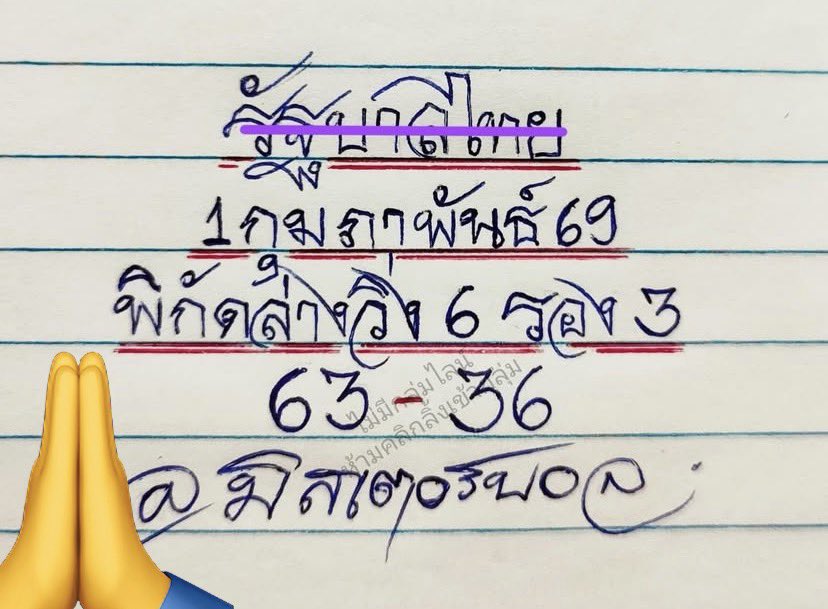 รัฐบาลไทย
1 กุมภาพันธ์ 69
พิกัดล่างวิ่ง 6 รอง 3
63 - 36
ไม่มีกลุ่มไลน์
ห้ามคลิกลิ้งเข้ากลุ่ม
@ มิสเตอร์บอล